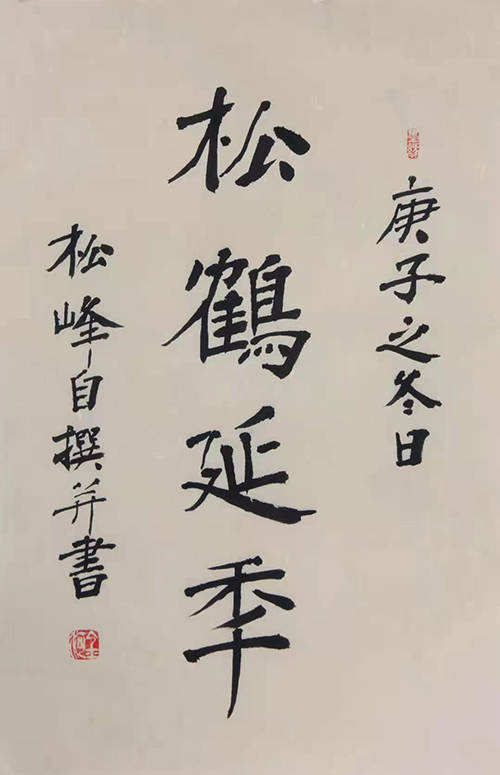 庚子之冬日
松鶴延秊
松峰自撰并書